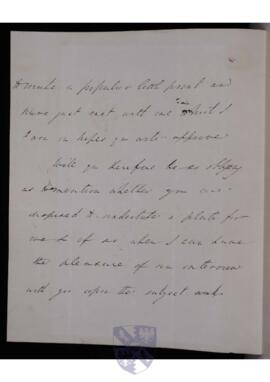 to create a popular little print and
have just met with one that I
I am in hopes you will approve
Will you therefore be so obliging
as to mention whether you are
disposed to undertake a plate for
me & if so, when I can have
the pleasure of an interview
with you upon the subject